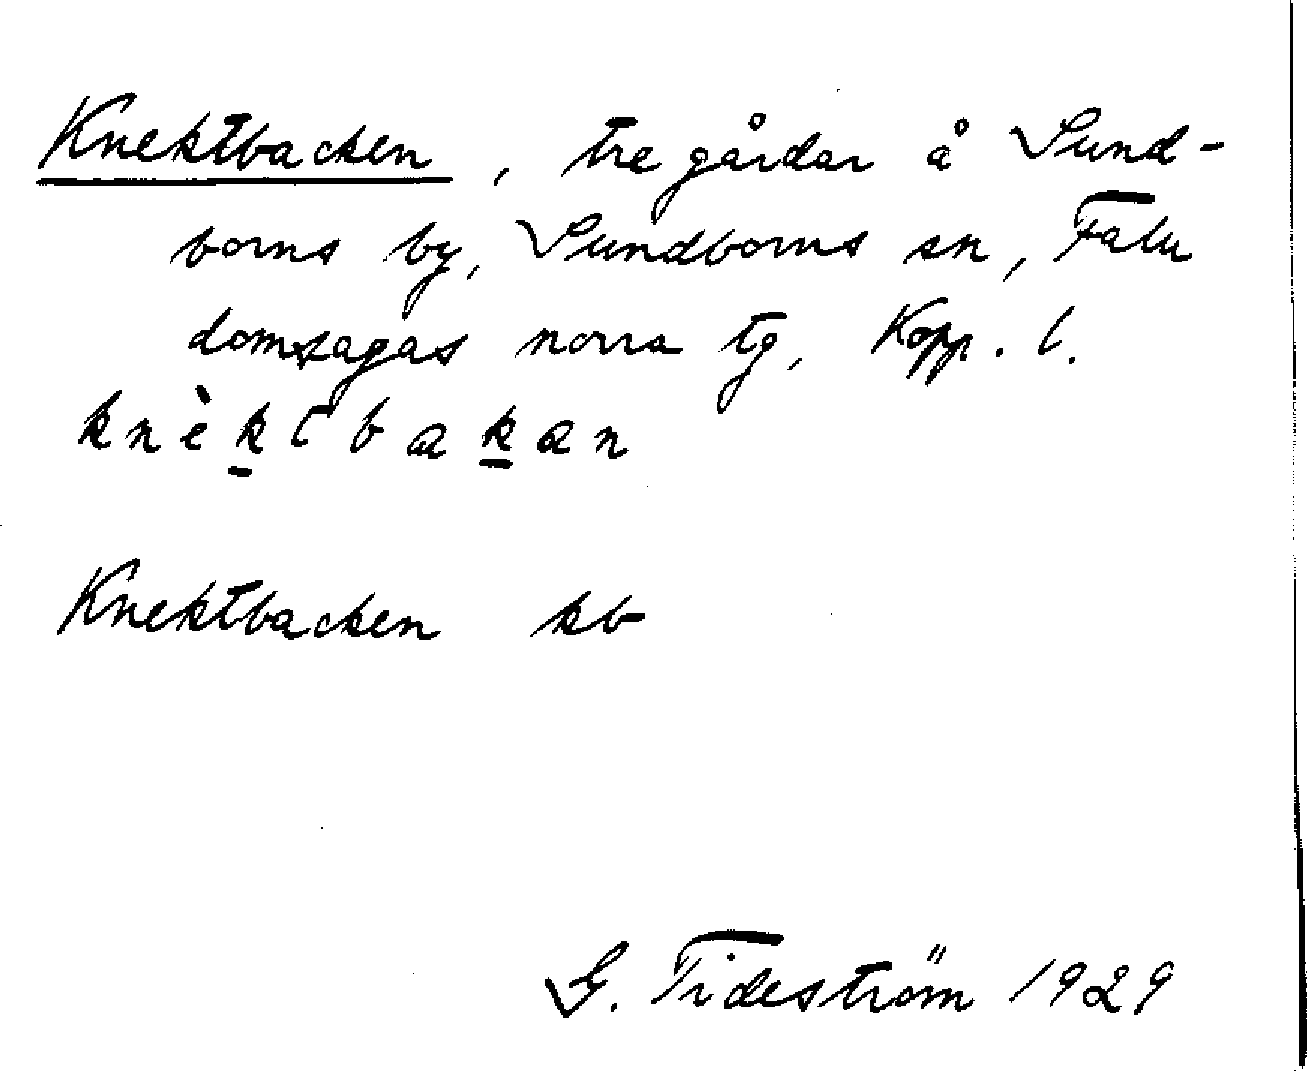 Knektbacken, tre gårdar å Sund-
borns by, Sundborns sn, Falu
domsagas norra tg, Kopp. l.
knèktbakan
Knektbacken kb
G. Tideström 1929